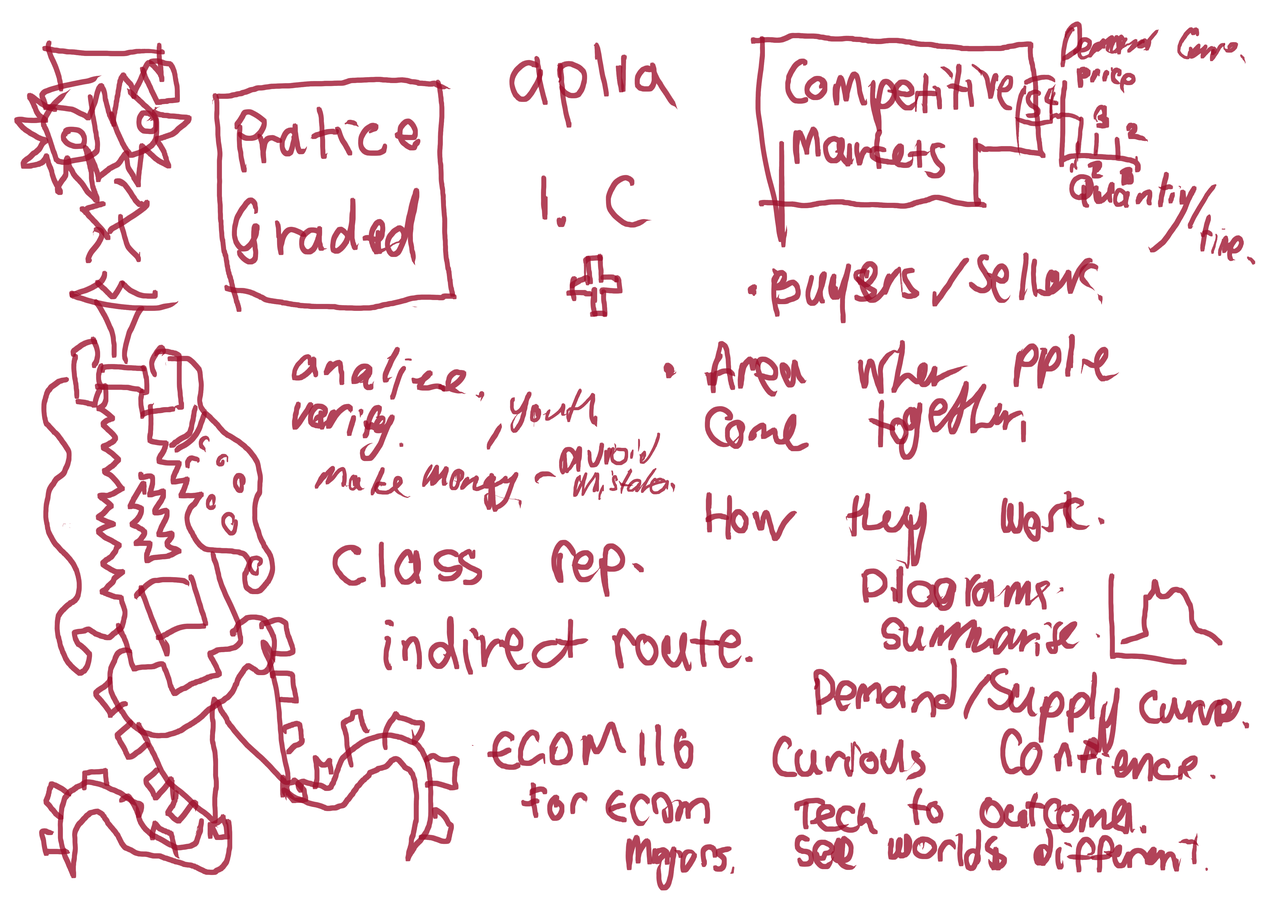 Pratice
Graded
aplia
1. C
Competitive
Markets
$4
Demand Curve.
price
3
2
2
Quantity/
time.
• Buyers / Sellers.
• Area when pple
Come together,
How they work.
Diagrams.
Summarise.
Demand/Supply Curve.
Curious
Tech to outcome.
See worlds different.
verify.
, youth
Make money -
class rep.
indirect route.
ECOM116
For Ecom
Majors.